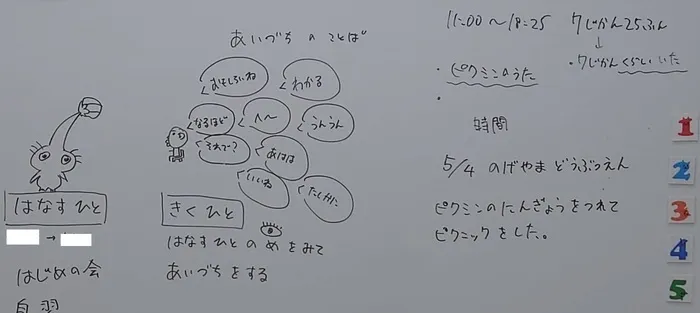 あいづち の ことば
おもしろいね
わかる
なるほど
へ〜
うんうん
それで?
あはは
いいね
たしかに
はなす ひと
→
はじめの会
自習
きく ひと
はなす ひと の め を みて
あいづち を する
11:00 〜 18:25
7じかん25ふん
↓
・7じかん くらい いた
・ピクミンのうた
・
時間
5/4 のげやま どうぶつえん
ピクミンのにんぎょうをつれて
ピクニックをした。
1
2
3
4
5